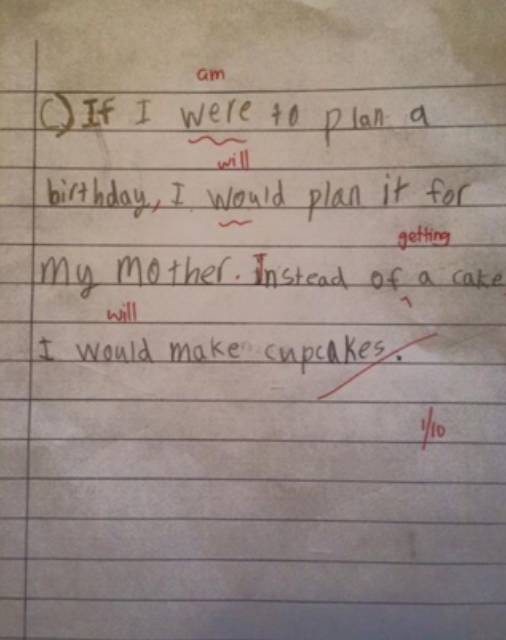 am
C) If I were to plan a
will
birthday, I would plan it for
getting
my mother. Instead of a cake
will
I would make cupcakes.
1/10